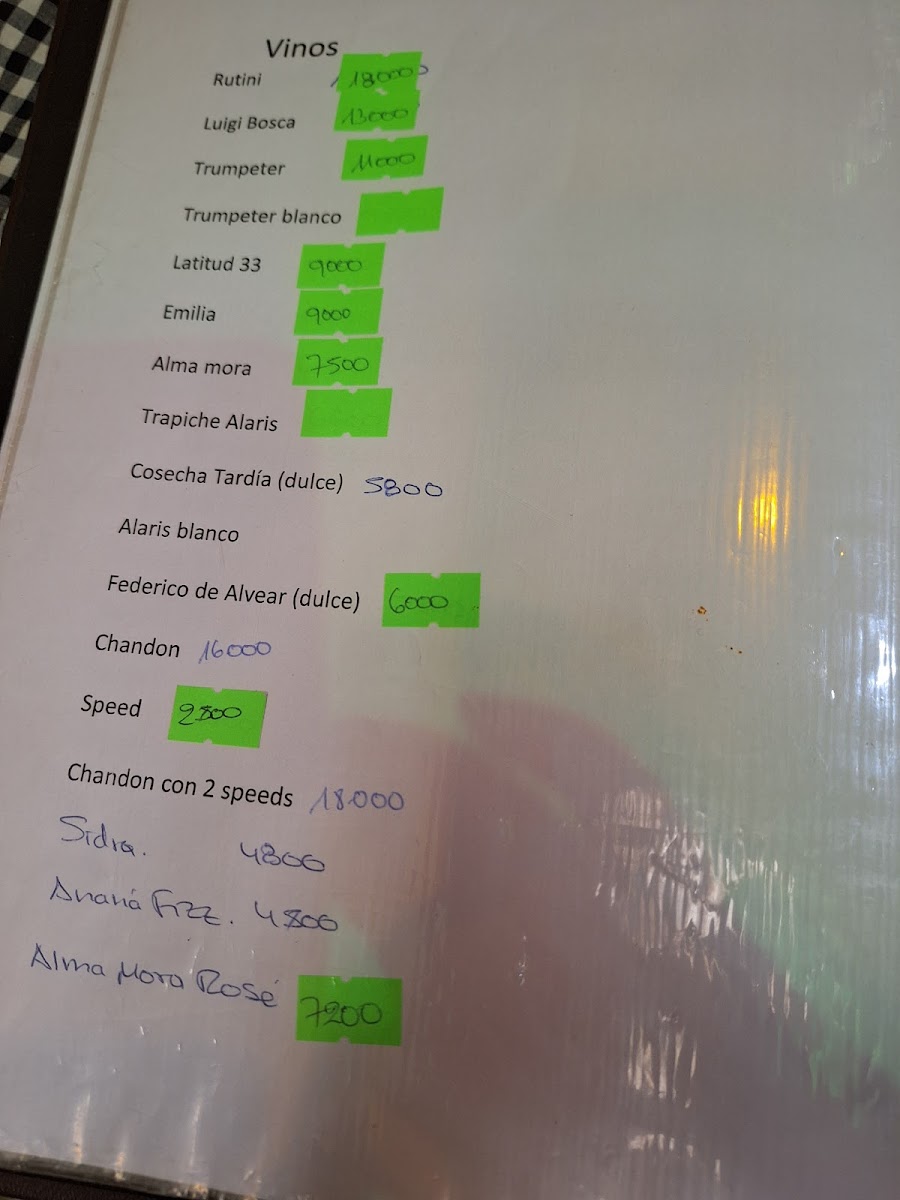 Vinos
Rutini 18000
Luigi Bosca 13000
Trumpeter 11000
Trumpeter blanco
Latitud 33 9000
Emilia 9000
Alma mora 7500
Trapiche Alaris
Cosecha Tardía (dulce) 5800
Alaris blanco
Federico de Alvear (dulce) 6000
Chandon 16000
Speed 2800
Chandon con 2 speeds 18.000
Sidra. 4800
Ananá Fizz. 4800
Alma Mora Rosé 7200